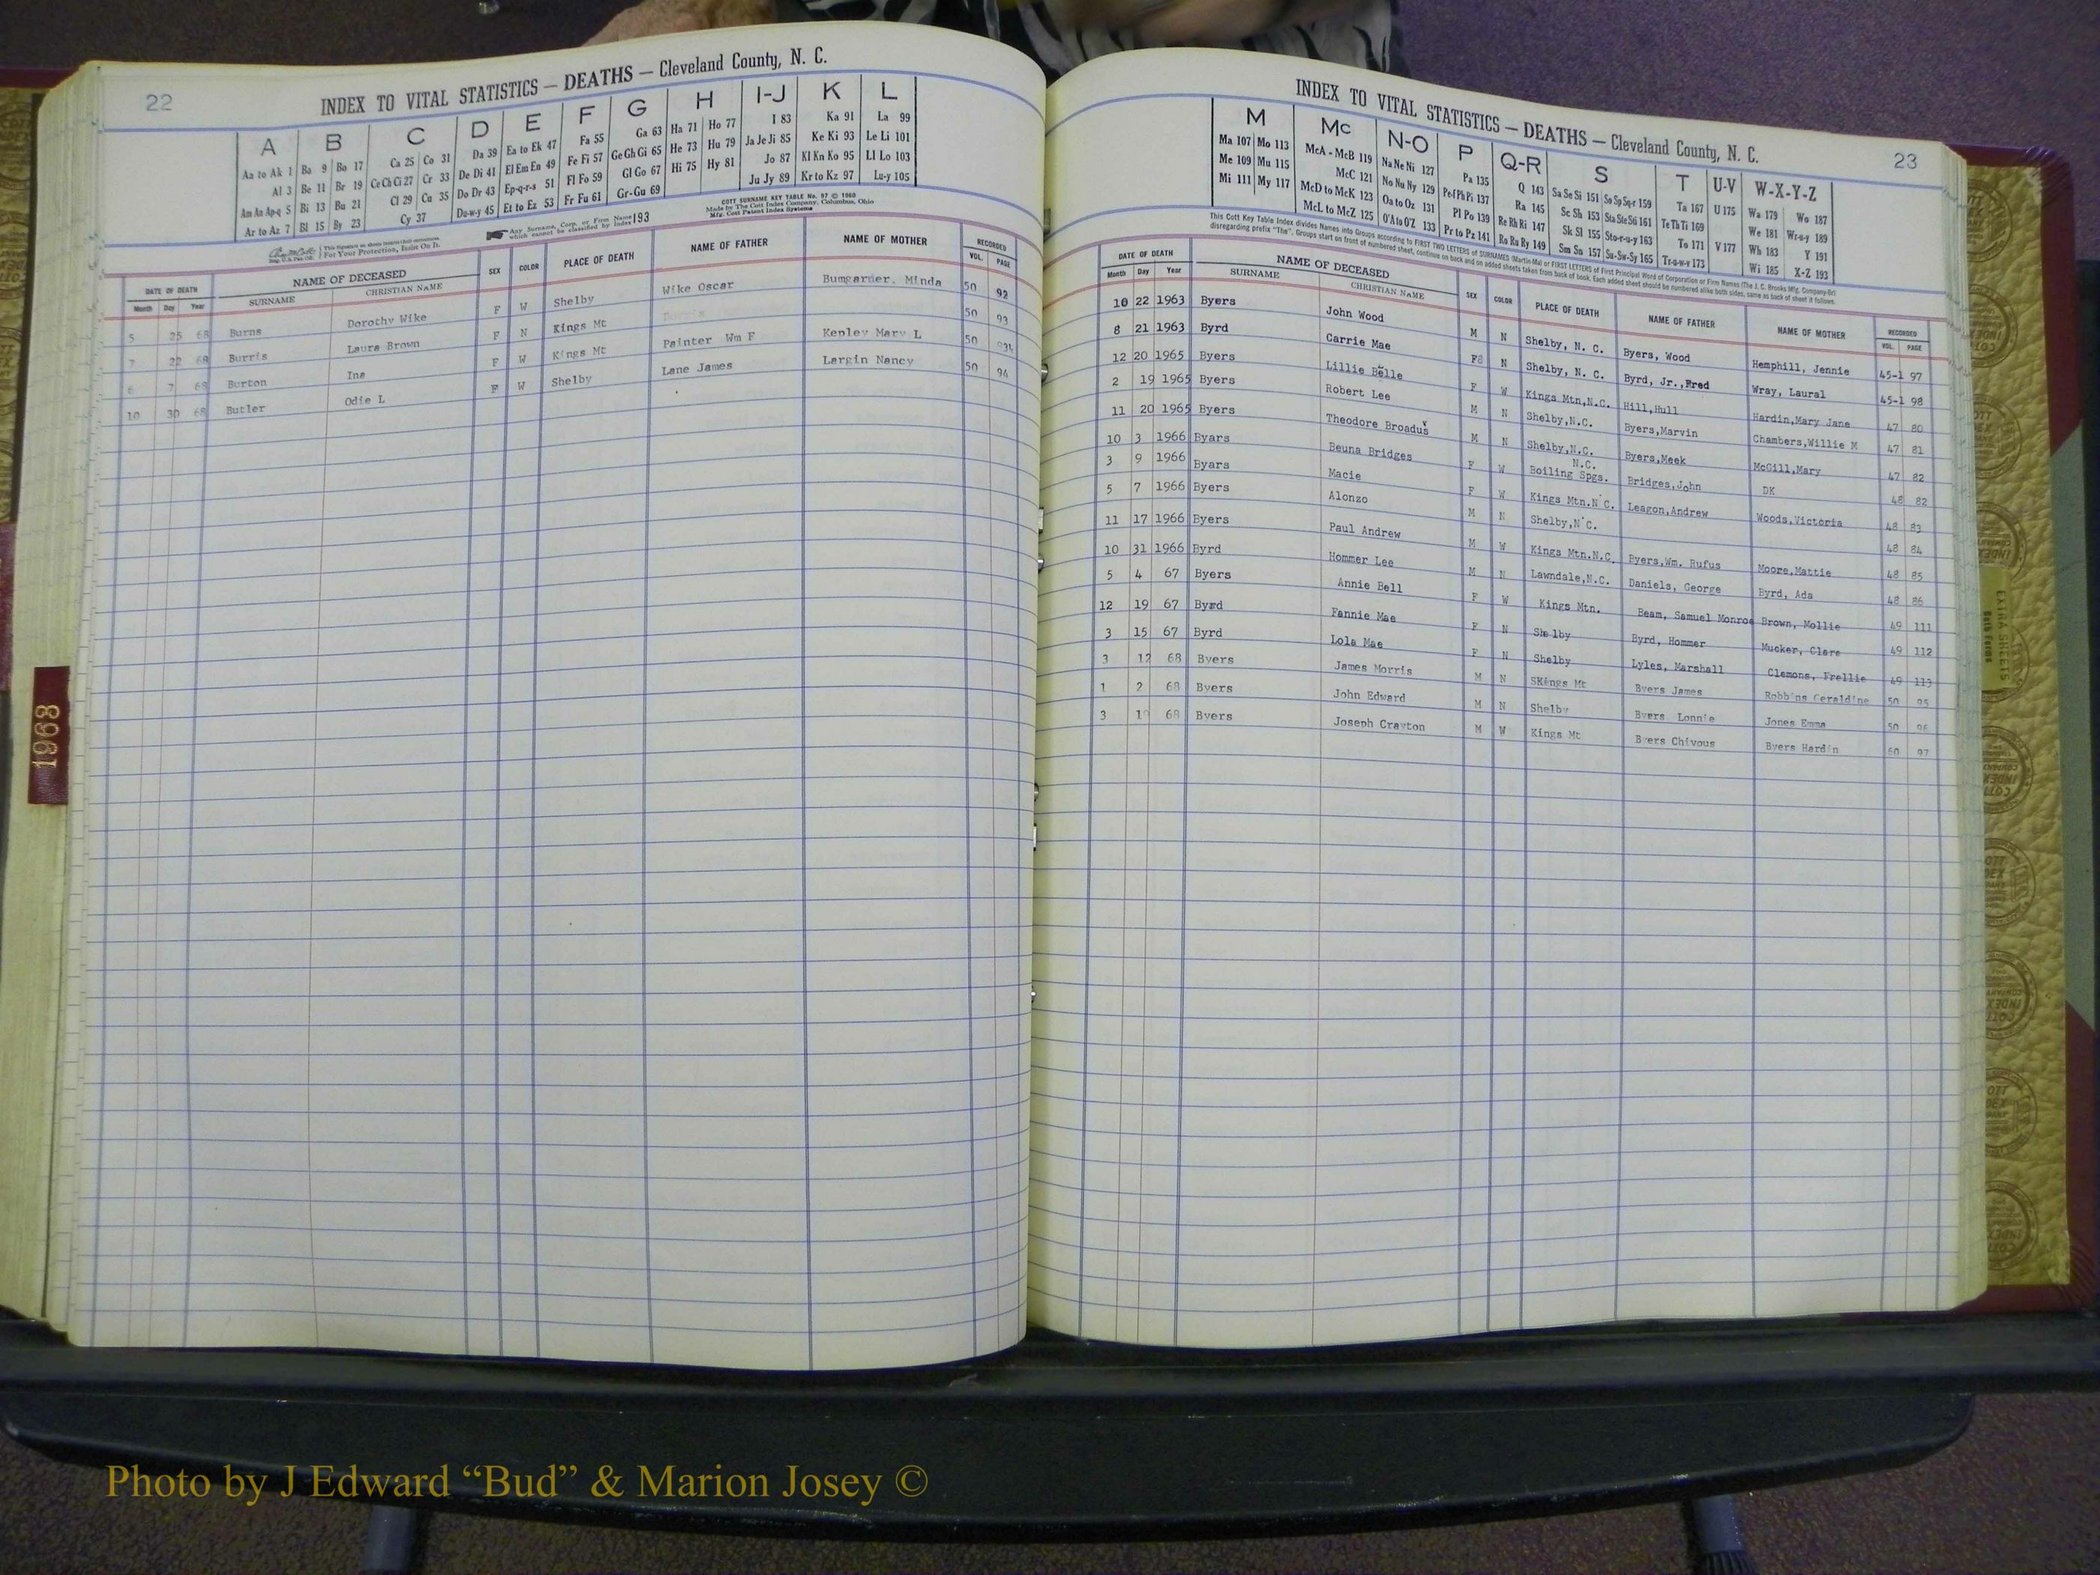 22
INDEX TO VITAL STATISTICS — DEATHS — Cleveland County, N. C.
A B C D E F G H I-J K L
Aa to Ak 1 Ba 9 Bo 17 Ca 25 Co 31 Da 39 Ea to Ek 47 Fa 55 Ga 63 Ha 71 Ho 77 I 83 Ka 91 La 99
Al 3 Be 11 Br 19 Ce Ch Ci 27 Cr 33 De Di 41 El Em En 49 Fe Fi 57 Ge Gh Gi 65 He 73 Hu 79 Ja Je Ji 85 Ke Ki 93 Le Li 101
Am An Ap-q 5 Bi 13 Bu 21 Cl 29 Cu 35 Do Dr 43 Ep-q-r-s 51 Fl Fo 59 Gl Go 67 Hi 75 Hy 81 Jo 87 Kl Kn Ko 95 Ll Lo 103
Ar to Az 7 Bl 15 By 23 Cy 37 Du-w-y 45 Et to Ez 53 Fr Fu 61 Gr-Gu 69 Ju Jy 89 Kr to Kz 97 Lu-y 105
For Your Protection, Insist On It.
Any Surname, Corp. or Firm Name which cannot be classified by Index 193
COTT SURNAME KEY TABLE No. 97 © 1960
Made by The Cott Index Company, Columbus, Ohio
Mfg. Cott Patent Index Systems
DATE OF DEATH NAME OF DECEASED SEX COLOR PLACE OF DEATH NAME OF FATHER NAME OF MOTHER RECORDED
Month Day Year SURNAME CHRISTIAN NAME VOL. PAGE
5 25 68 Burns Dorothy Wike F W Shelby Wike Oscar Bumgarner, Minda 50 92
7 22 68 Burris Laura Brown F N Kings Mt 50 93
6 7 68 Burton Ina F W Kings Mt Painter Wm F Kenley Mary L 50
10 30 68 Butler Odie L F W Shelby Lane James Largin Nancy 50 94
23
INDEX TO VITAL STATISTICS — DEATHS — Cleveland County, N. C.
M Mc N-O P Q-R S T U-V W-X-Y-Z
Ma 107 Mo 113 McA - McB 119 Na Ne Ni 127 Pa 135 Q 143 Sa Se Si 151 So Sp Sq-r 159 Ta 167 U 175 Wa 179 Wo 187
Me 109 Mu 115 McC 121 No Nu Ny 129 Pe-f Ph Pi 137 Ra 145 Sc Sh 153 Sta Ste Sti 161 Te Th Ti 169 We 181 Wr-u-y 189
Mi 111 My 117 McD to McK 123 Oa to Oz 131 Pl Po 139 Re Rh Ri 147 Sk Sl 155 Sto-r-u-y 163 To 171 V 177 Wh 183 Y 191
McL to McZ 125 O'A to O'Z 133 Pr to Pz 141 Ro Ru Ry 149 Sm Sn 157 Su-Sw-Sy 165 Tr-u-w-y 173 Wi 185 X-Z 193
This Cott Key Table Index divides Names into Groups according to FIRST TWO LETTERS of SURNAMES (Martin-Ma) or FIRST LETTERS of First Principal Word of Corporation or Firm Names (The J. C. Brooks Mfg. Company-Br)
disregarding prefix "The". Groups start on front of numbered sheet, continue on back and on added sheets taken from back of book. Each added sheet should be numbered alike both sides, same as back of sheet it follows.
DATE OF DEATH NAME OF DECEASED SEX COLOR PLACE OF DEATH NAME OF FATHER NAME OF MOTHER RECORDED
Month Day Year SURNAME CHRISTIAN NAME VOL. PAGE
10 22 1963 Byers John Wood M N Shelby, N. C. Byers, Wood Hemphill, Jennie 45-1 97
8 21 1963 Byrd Carrie Mae F N Shelby, N. C. Byrd, Jr., Fred Wray, Laural 45-1 98
12 20 1965 Byers Lillie Belle F W Kings Mtn,N.C. Hill,Hull Hardin,Mary Jane 47 80
2 19 1965 Byers Robert Lee M N Shelby,N.C. Byers,Marvin Chambers,Willie M 47 81
11 20 1965 Byers Theodore Broadus M N Shelby,N.C. Byers,Meek McGill,Mary 47 82
10 3 1966 Byars Beuna Bridges F W Boiling Spgs. N.C. Bridges,John DK 48 82
3 9 1966 Byars Macie F W Kings Mtn.N.C. Leagon,Andrew Woods,Victoria 48 83
5 7 1966 Byers Alonzo M N Shelby,N.C. 48 84
11 17 1966 Byers Paul Andrew M W Kings Mtn.N.C. Byers,Wm. Rufus Moore,Mattie 48 85
10 31 1966 Byrd Hommer Lee M N Lawndale,N.C. Daniels, George Byrd, Ada 48 86
5 4 67 Byers Annie Bell F W Kings Mtn. Beam, Samuel Monroe Brown, Mollie 49 111
12 19 67 Byrd Fannie Mae F N Shelby Byrd, Hommer Mucker, Clara 49 112
3 15 67 Byrd Lola Mae F N Shelby Lyles, Marshall Clemons, Frellie 49 113
3 12 68 Byers James Morris M N SKings Mt Byers James Robbins Geraldine 50 95
1 2 68 Byers John Edward M N Shelby Byers Lonnie Jones Emma 50 96
3 68 Byers Joseph Crayton M W Kings Mt Byers Chivous Byers Hardin 97
1968
EXTRA SHEETS
Photo by J Edward “Bud” & Marion Josey ©